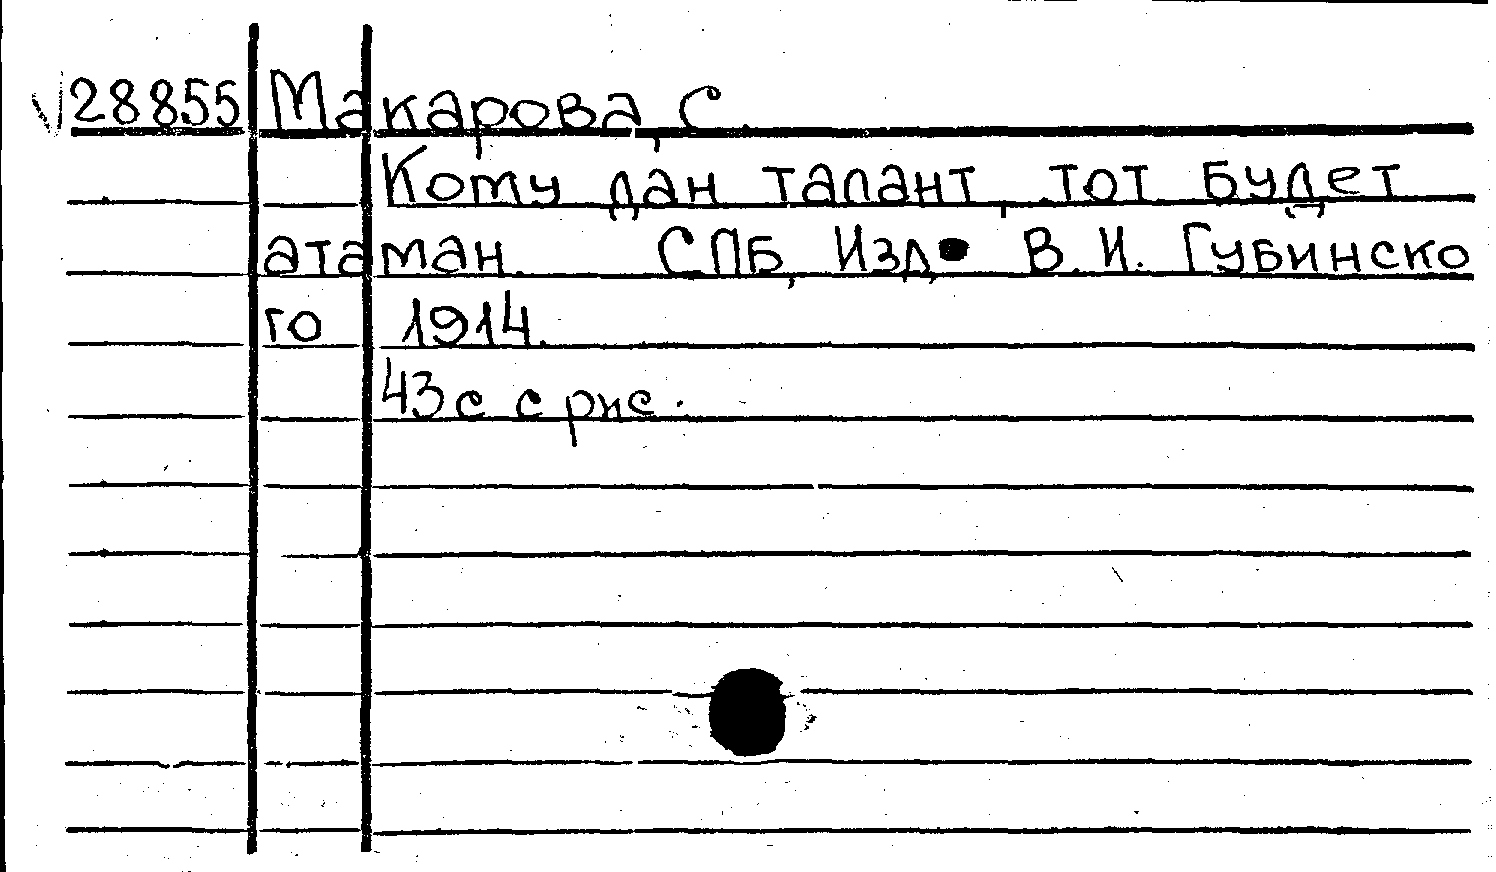 √28855 Макарова, С.
Кому дан талант, тот будет
атаман. СПБ, Изд. В. И. Губинско
го 1914.
43 с с рис.